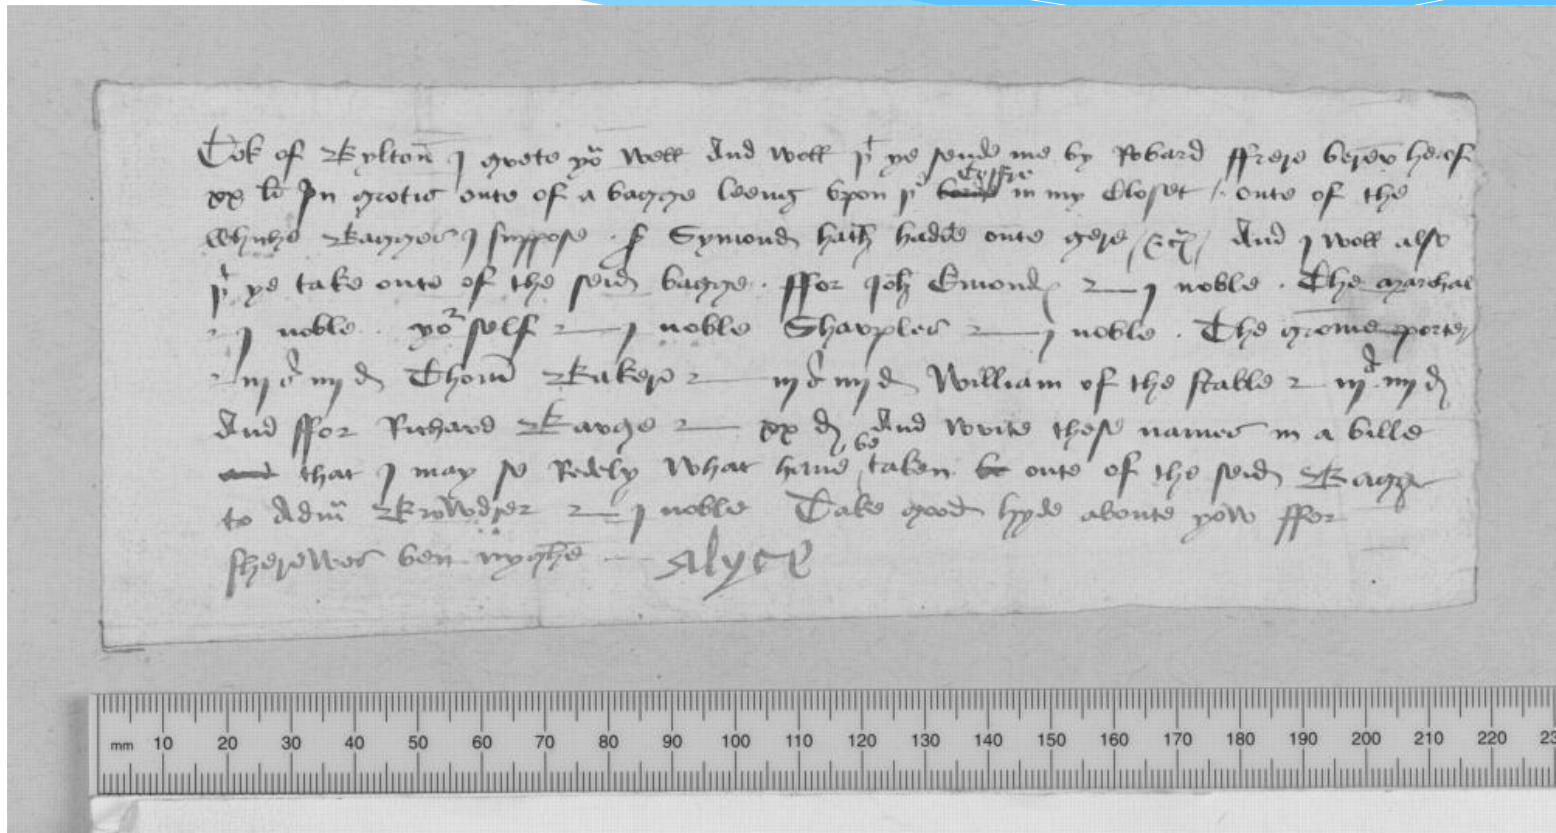 Cok of Bylton I grete yow well And woll þt ye sende me by Robard ffrere berer herof
xx li In grotis oute of a bagge leeng vpon þe bord Coffre in my Closet / oute of the
Whiche Bagges I suppose þt Symond hath hadde oute gere / &c / And I woll also
þt ye take oute of the seid bagge . ffor Joh Emond j noble . The Marchal
j noble . yor self j noble Sharples j noble . The grome porter
iij s iiij d Thom Baker iij s iiij d William of the stable iij s iiij d
And ffor Richard Barge xx d And write these names in a bille
and that I may se Redely What have be taken be oute of the seid Bagge
to Adm j noble Take good hyde aboute yow ffor
sherewes ben nyghe Alyce
mm 10 20 30 40 50 60 70 80 90 100 110 120 130 140 150 160 170 180 190 200 210 220 23